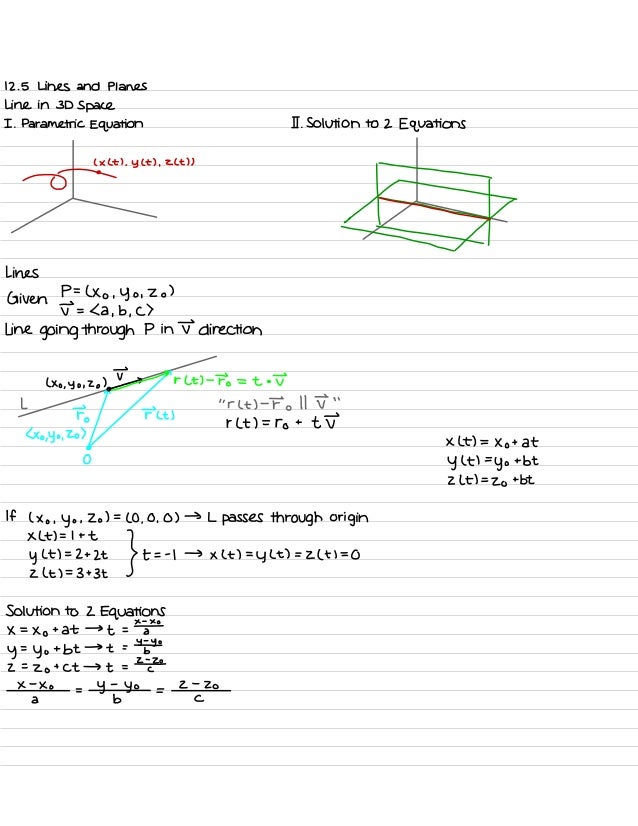 12.5 Lines and Planes
Line in 3D Space
I. Parametric Equation
II. Solution to 2 Equations
(x(t), y(t), z(t))
Lines
Given P=(x₀, y₀, z₀)
v⃗ = <a, b, c>
Line going through P in v⃗ direction
(x₀, y₀, z₀)
v⃗
r(t)-r⃗₀ = t • v⃗
L
r⃗₀
r⃗(t)
"r(t)-r⃗₀ || v⃗"
r(t) = r₀ + t v⃗
<x₀, y₀, z₀>
O
x(t) = x₀ + at
y(t) = y₀ + bt
z(t) = z₀ + bt
If (x₀, y₀, z₀) = (0, 0, 0) → L passes through origin
x(t) = 1 + t
y(t) = 2 + 2t } t = -1 → x(t) = y(t) = z(t) = 0
z(t) = 3 + 3t
Solution to 2 Equations
x = x₀ + at → t = x-x₀/a
y = y₀ + bt → t = y-y₀/b
z = z₀ + ct → t = z-z₀/c
x-x₀/a = y-y₀/b = z-z₀/c